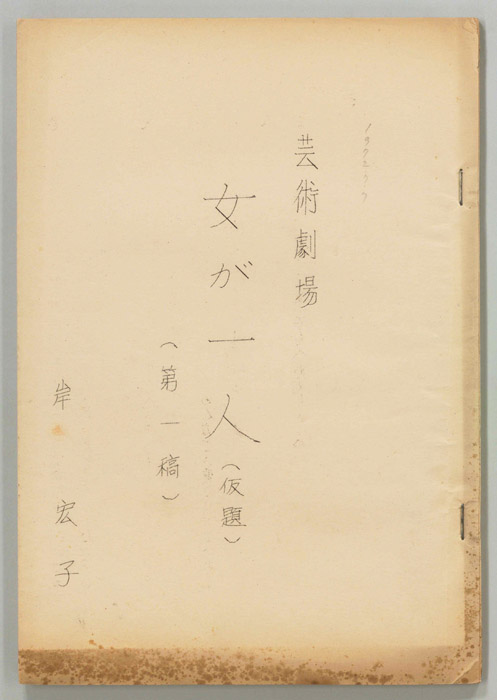 芸術劇場
女が一人(仮題)
(第一稿)
岸宏子